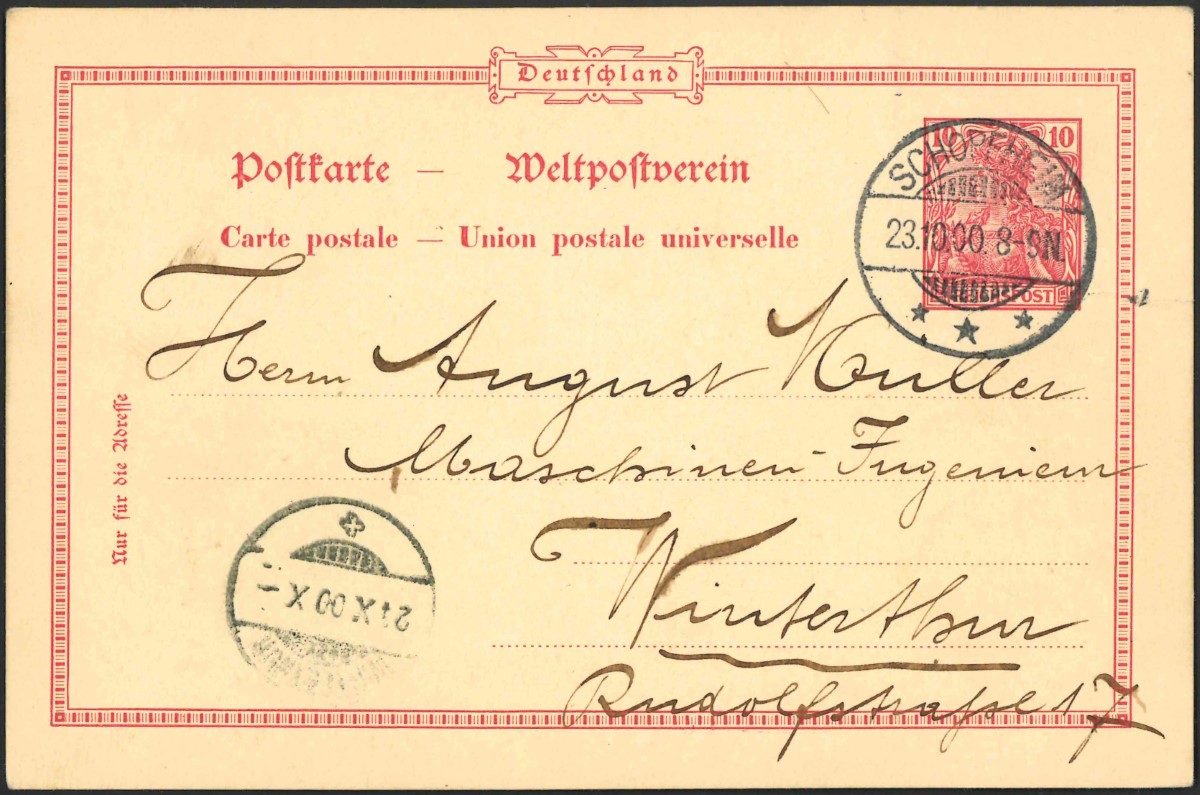 Deutschland
Postkarte — Weltpostverein
Carte postale — Union postale universelle
10 10
SCHOPFHEIM
23.10.00. 8-9N.
Herrn August Müller
Maschinen-Ingenieur
Winterthur
Rudolfstrasse 17
Nur für die Adresse
24 X 00 X